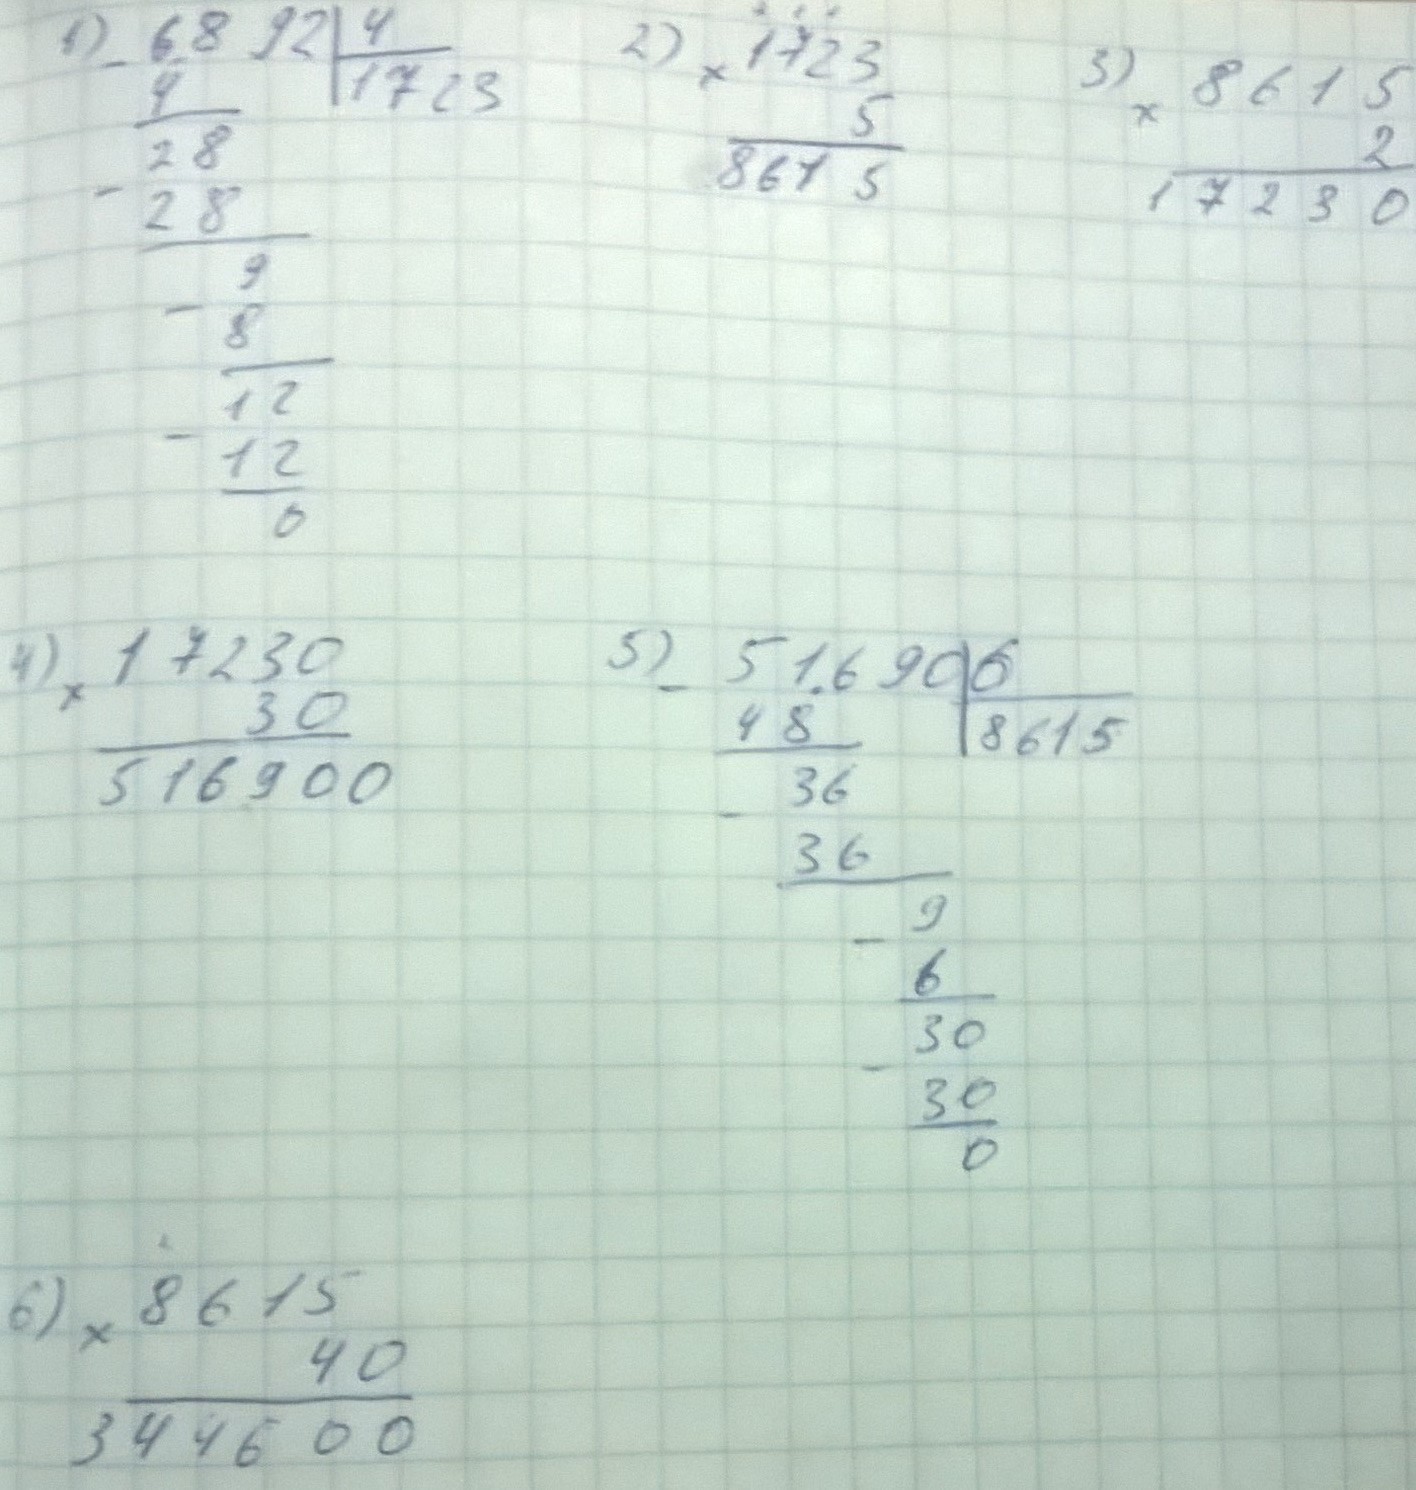 1) - 6892 | 4
4 | 1723
28
- 28
9
- 8
12
- 12
0
2) × 1723
5
8615
3) × 8615
2
17230
4) × 17230
30
516900
5) - 51690 | 6
48 | 8615
36
- 36
9
- 6
30
- 30
0
6) × 8615
40
344600